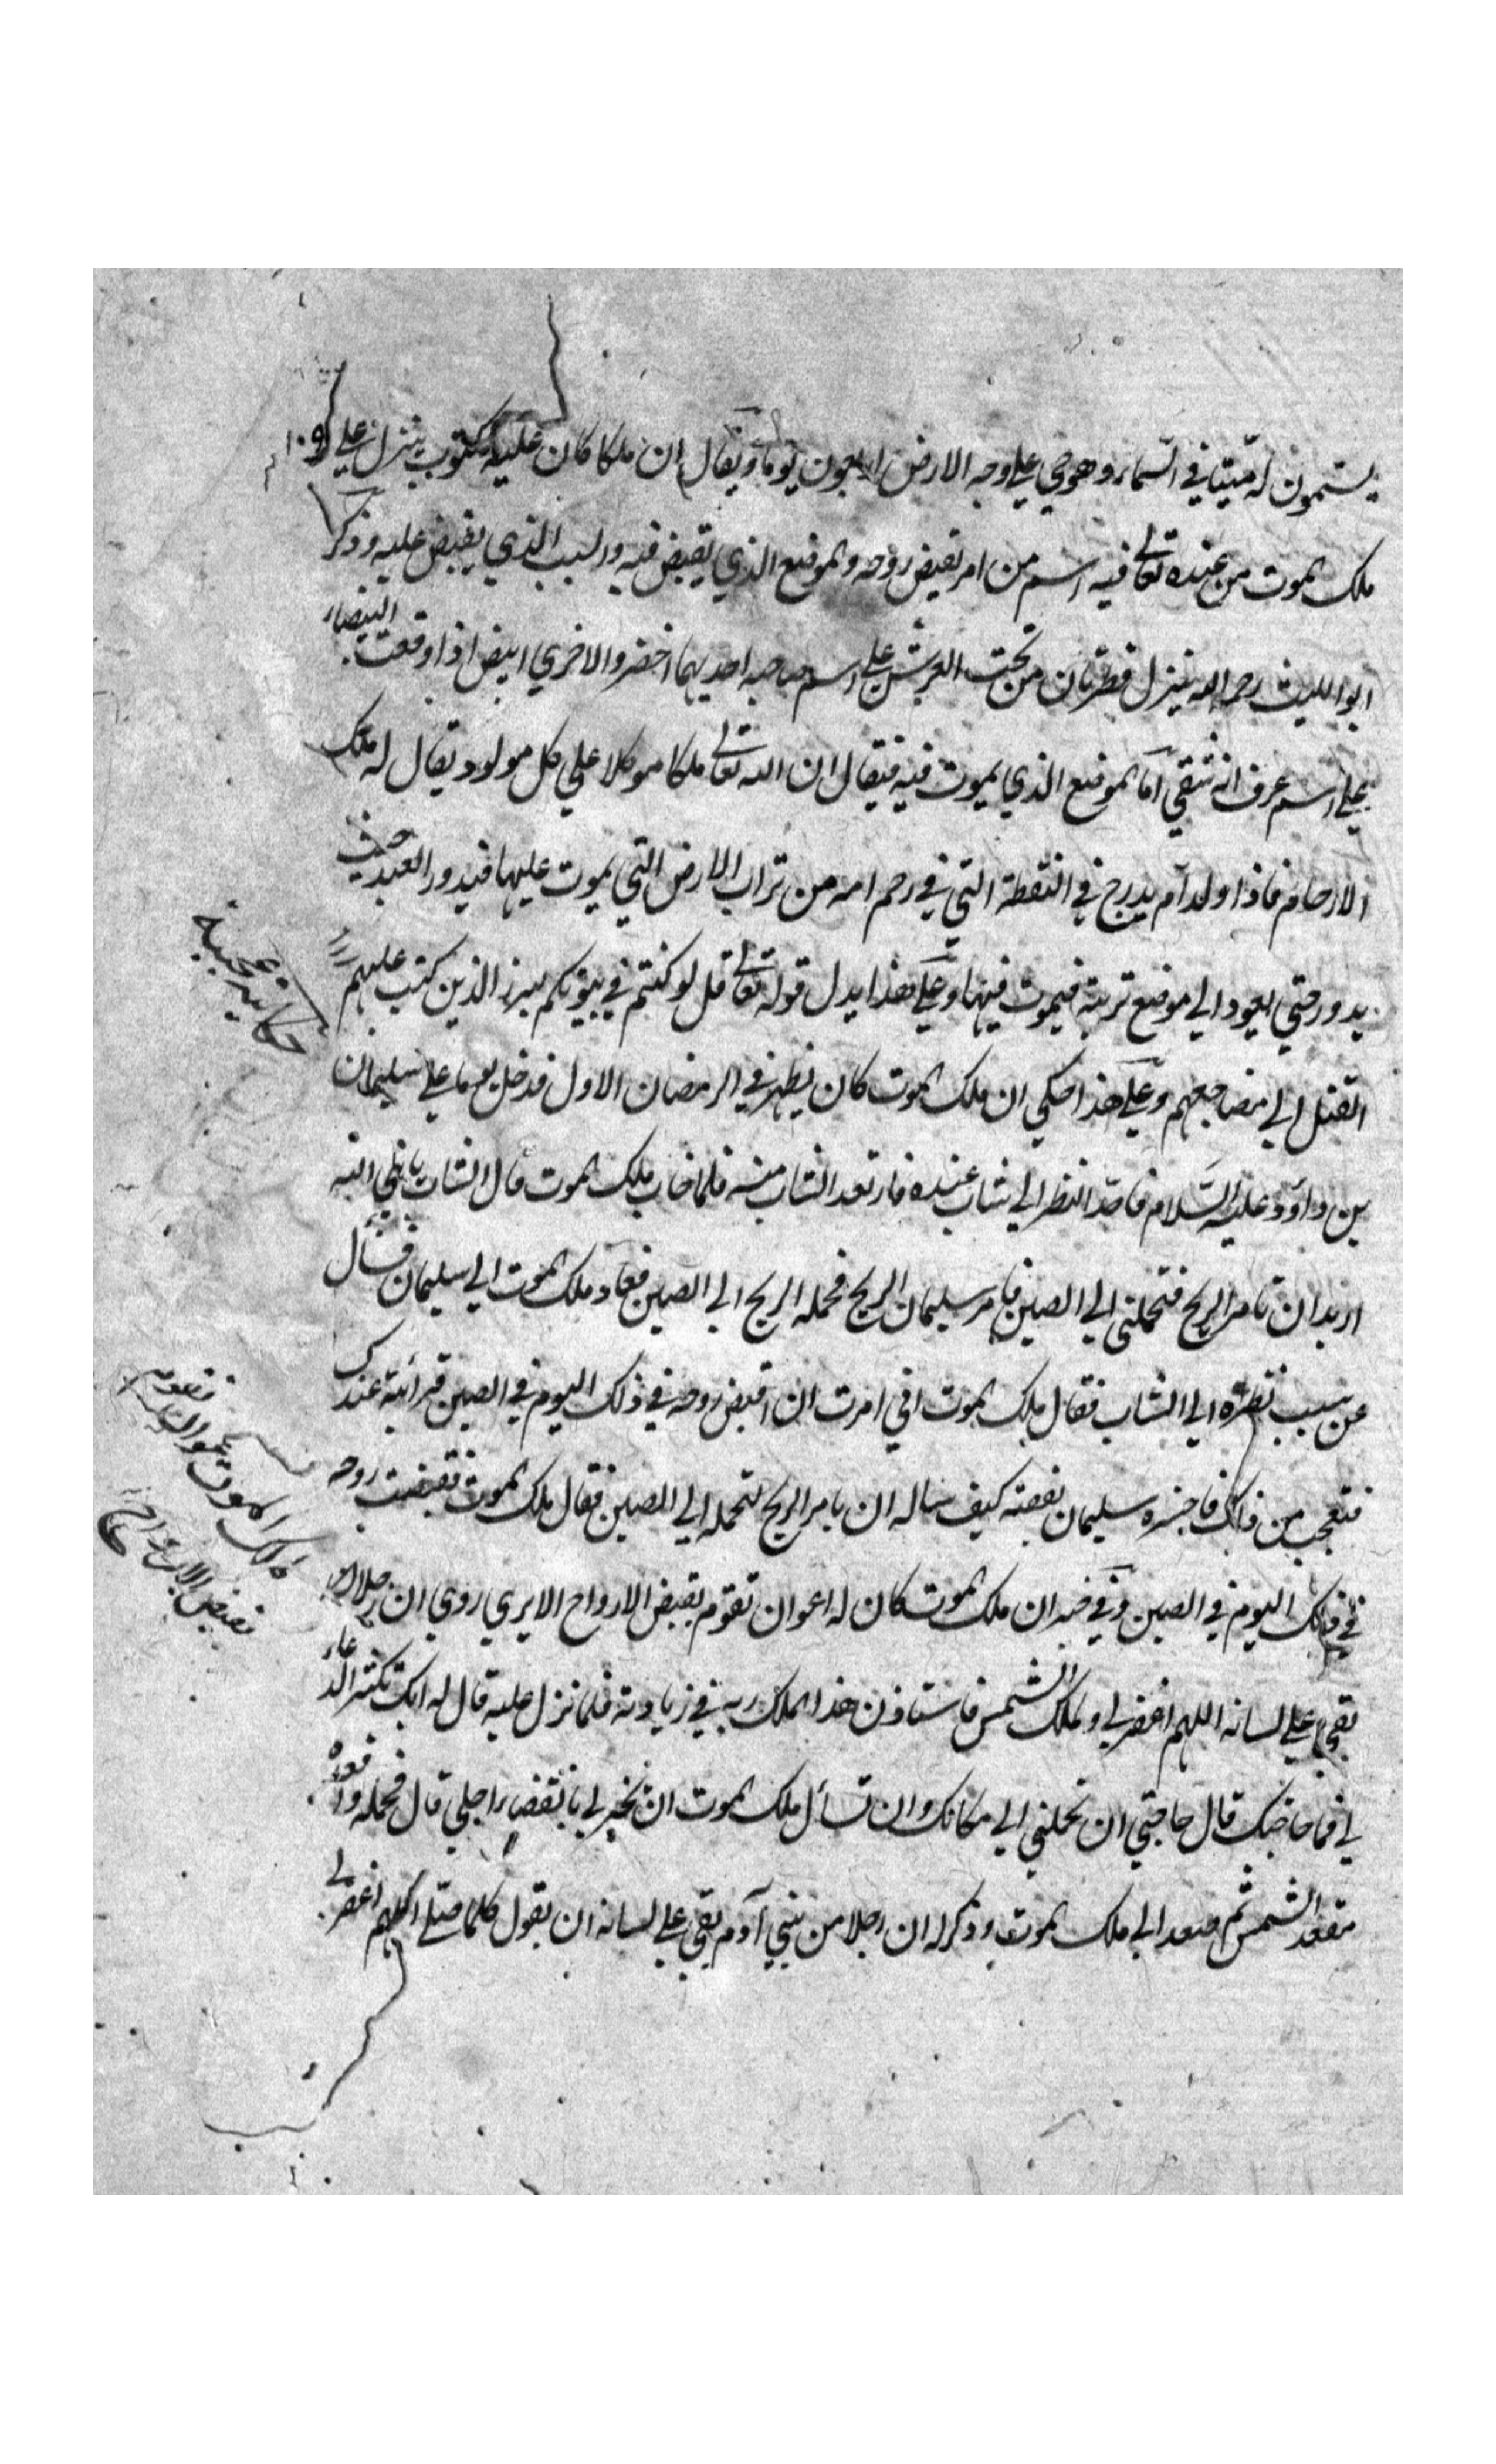 يسمون له ميتا في السماء وهو حي علي وجه الارض اربعون يوما ويقال ان ملكا كان عليه مكتوب ينزل علي
ملك الموت من عنده تعالي فيه اسم من امر تقبض روحه والموضع الذي يقبض فيه والسبب الذي يقبض عليه وذكر
ابو الليث رحمه الله ينزل قطرتان من تحت العرش علي اسم صاحبه احديهما اخضر والاخري ابيض اذا وقعت البيضاء
علي اسم عرف انه شقي اما الموضع الذي يموت فيه فيقال ان الله تعالي ملكا موكلا علي كل مولود يقال له ملك
الارحام فاذا ولد آدم يدرج في النقطة التي في رحم امه من تراب الارض التي يموت عليها فيدور العبد حيث
يدور حتي يعود الي موضع تربته فيموت فيها وعلي هذا يدل قوله تعالي قل لو كنتم في بيوتكم لبرز الذين كتب عليهم
القتل الي مضاجعهم وعلي هذا حكي ان ملك الموت كان يظهر في الرمضان الاول فدخل يوما علي سليمان
بن داود عليه السلام فاحد النظر الي شاب عنده فارتعد الشاب منه فلما غاب ملك الموت قال الشاب يا نبي الله
اريد ان تامر الريح فتحملني الي الصين فامر سليمان الريح فحمله الريح الي الصين فعاد ملك الموت الي سليمان فسأل
عن سبب نظره الي الشاب فقال ملك الموت اني امرت ان اقبض روحه في ذلك اليوم في الصين فرأيته عندك
فتعجبت من ذلك فاخبره سليمان بقصته كيف ساله ان يامر الريح لتحمله الي الصين فقال ملك الموت فقبضت روحه
في ذلك اليوم في الصين وفي خبر ان ملك الموت كان له اعوان تقوم بقبض الارواح الا يري روي ان رجلا
بقي علي لسانه اللهم اغفر لي ولملك الشمس فاستاذن هذا الملك ربه في زيادته فلما نزل عليه قال له انك تكثر الدعاء
لي فما حاجتك قال حاجتي ان تحملني الي مكانك وان تسأل ملك الموت ان يخبر لي بانقضاء اجلي قال فحمله واقعده
مقعد الشمس ثم صعد الي ملك الموت وذكر له ان رجلا من بني آدم بقي علي لسانه ان يقول كلما صلي اللهم اغفر لي
حكاية عجيبة
ملك الموت اعوان تقوم
بقبض الارواح